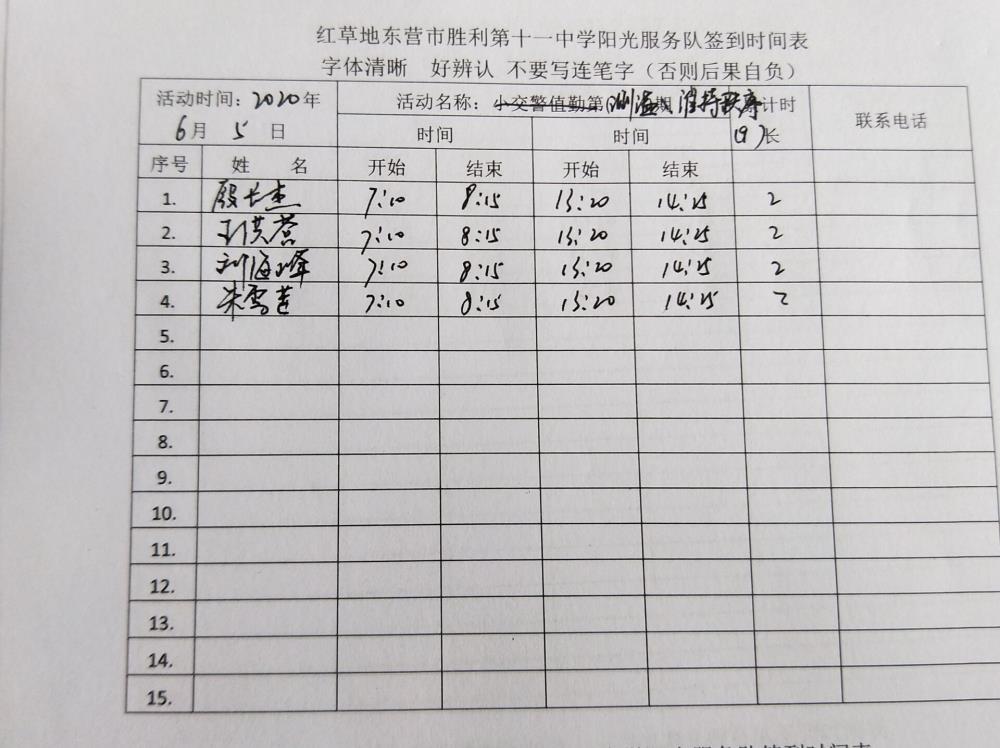 红草地东营市胜利第十一中学阳光服务队签到时间表
字体清晰 好辨认 不要写连笔字（否则后果自负）
活动时间：2020年 活动名称：小交警值勤第 期 测温、维持秩序 计时 联系电话
6月 5 日 时间 时间 (9) 长
序号 姓 名 开始 结束 开始 结束
1. 殷长杰 7:10 8:15 13:20 14:25 2
2. 7:10 8:15 13:20 14:25 2
3. 刘海峰 7:10 8:15 13:20 14:25 2
4. 朱雪莲 7:10 8:15 13:20 14:25 2
5.
6.
7.
8.
9.
10.
11.
12.
13.
14.
15.